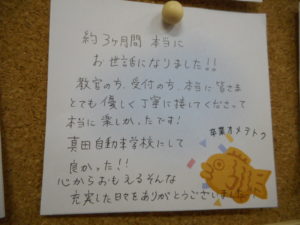 約3ヶ月間 本当に
お世話になりました!!
教官の方、受付の方、本当に皆さま
とても優しく丁寧に接してくださって
本当に楽しかったです!
真田自動車学校にして
良かった!!
心からおもえるそんな
充実した日々をありがとうございました
卒業オメデトウ